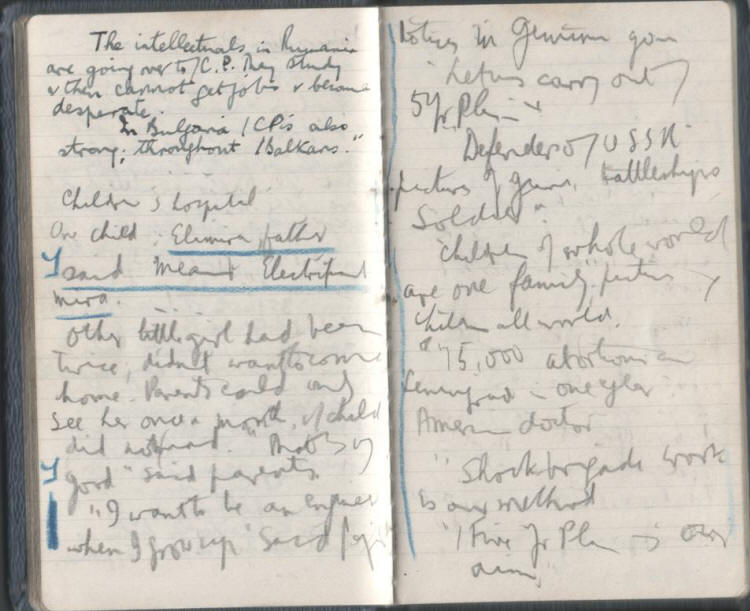 The intellectuals in Rumania
are going over to / C.P. They study
& then cannot get jobs & become
desperate.
In Bulgaria / CP is also
strong; throughout / Balkans."
Children's hospital
One child: Elimira, father
said means Electrified
mira.
Other little girl had been
twice, didn't want to come
home. Parents could only
see her once a month, if child
did not mind. "That's
good" said parents.
"I want to be an engineer
when I grow up" said
Notices in German
Let us carry out /
5 Yr. Plan
Defender of / USSR
pictures of guns, battleships
Soldiers.
"Children of whole world
are one family" picture
children all world.
"75,000 abortions in
Leningrad in one year
American doctor
"Shock brigade work
is our method
"/ Five Yr Plan is our
aim"